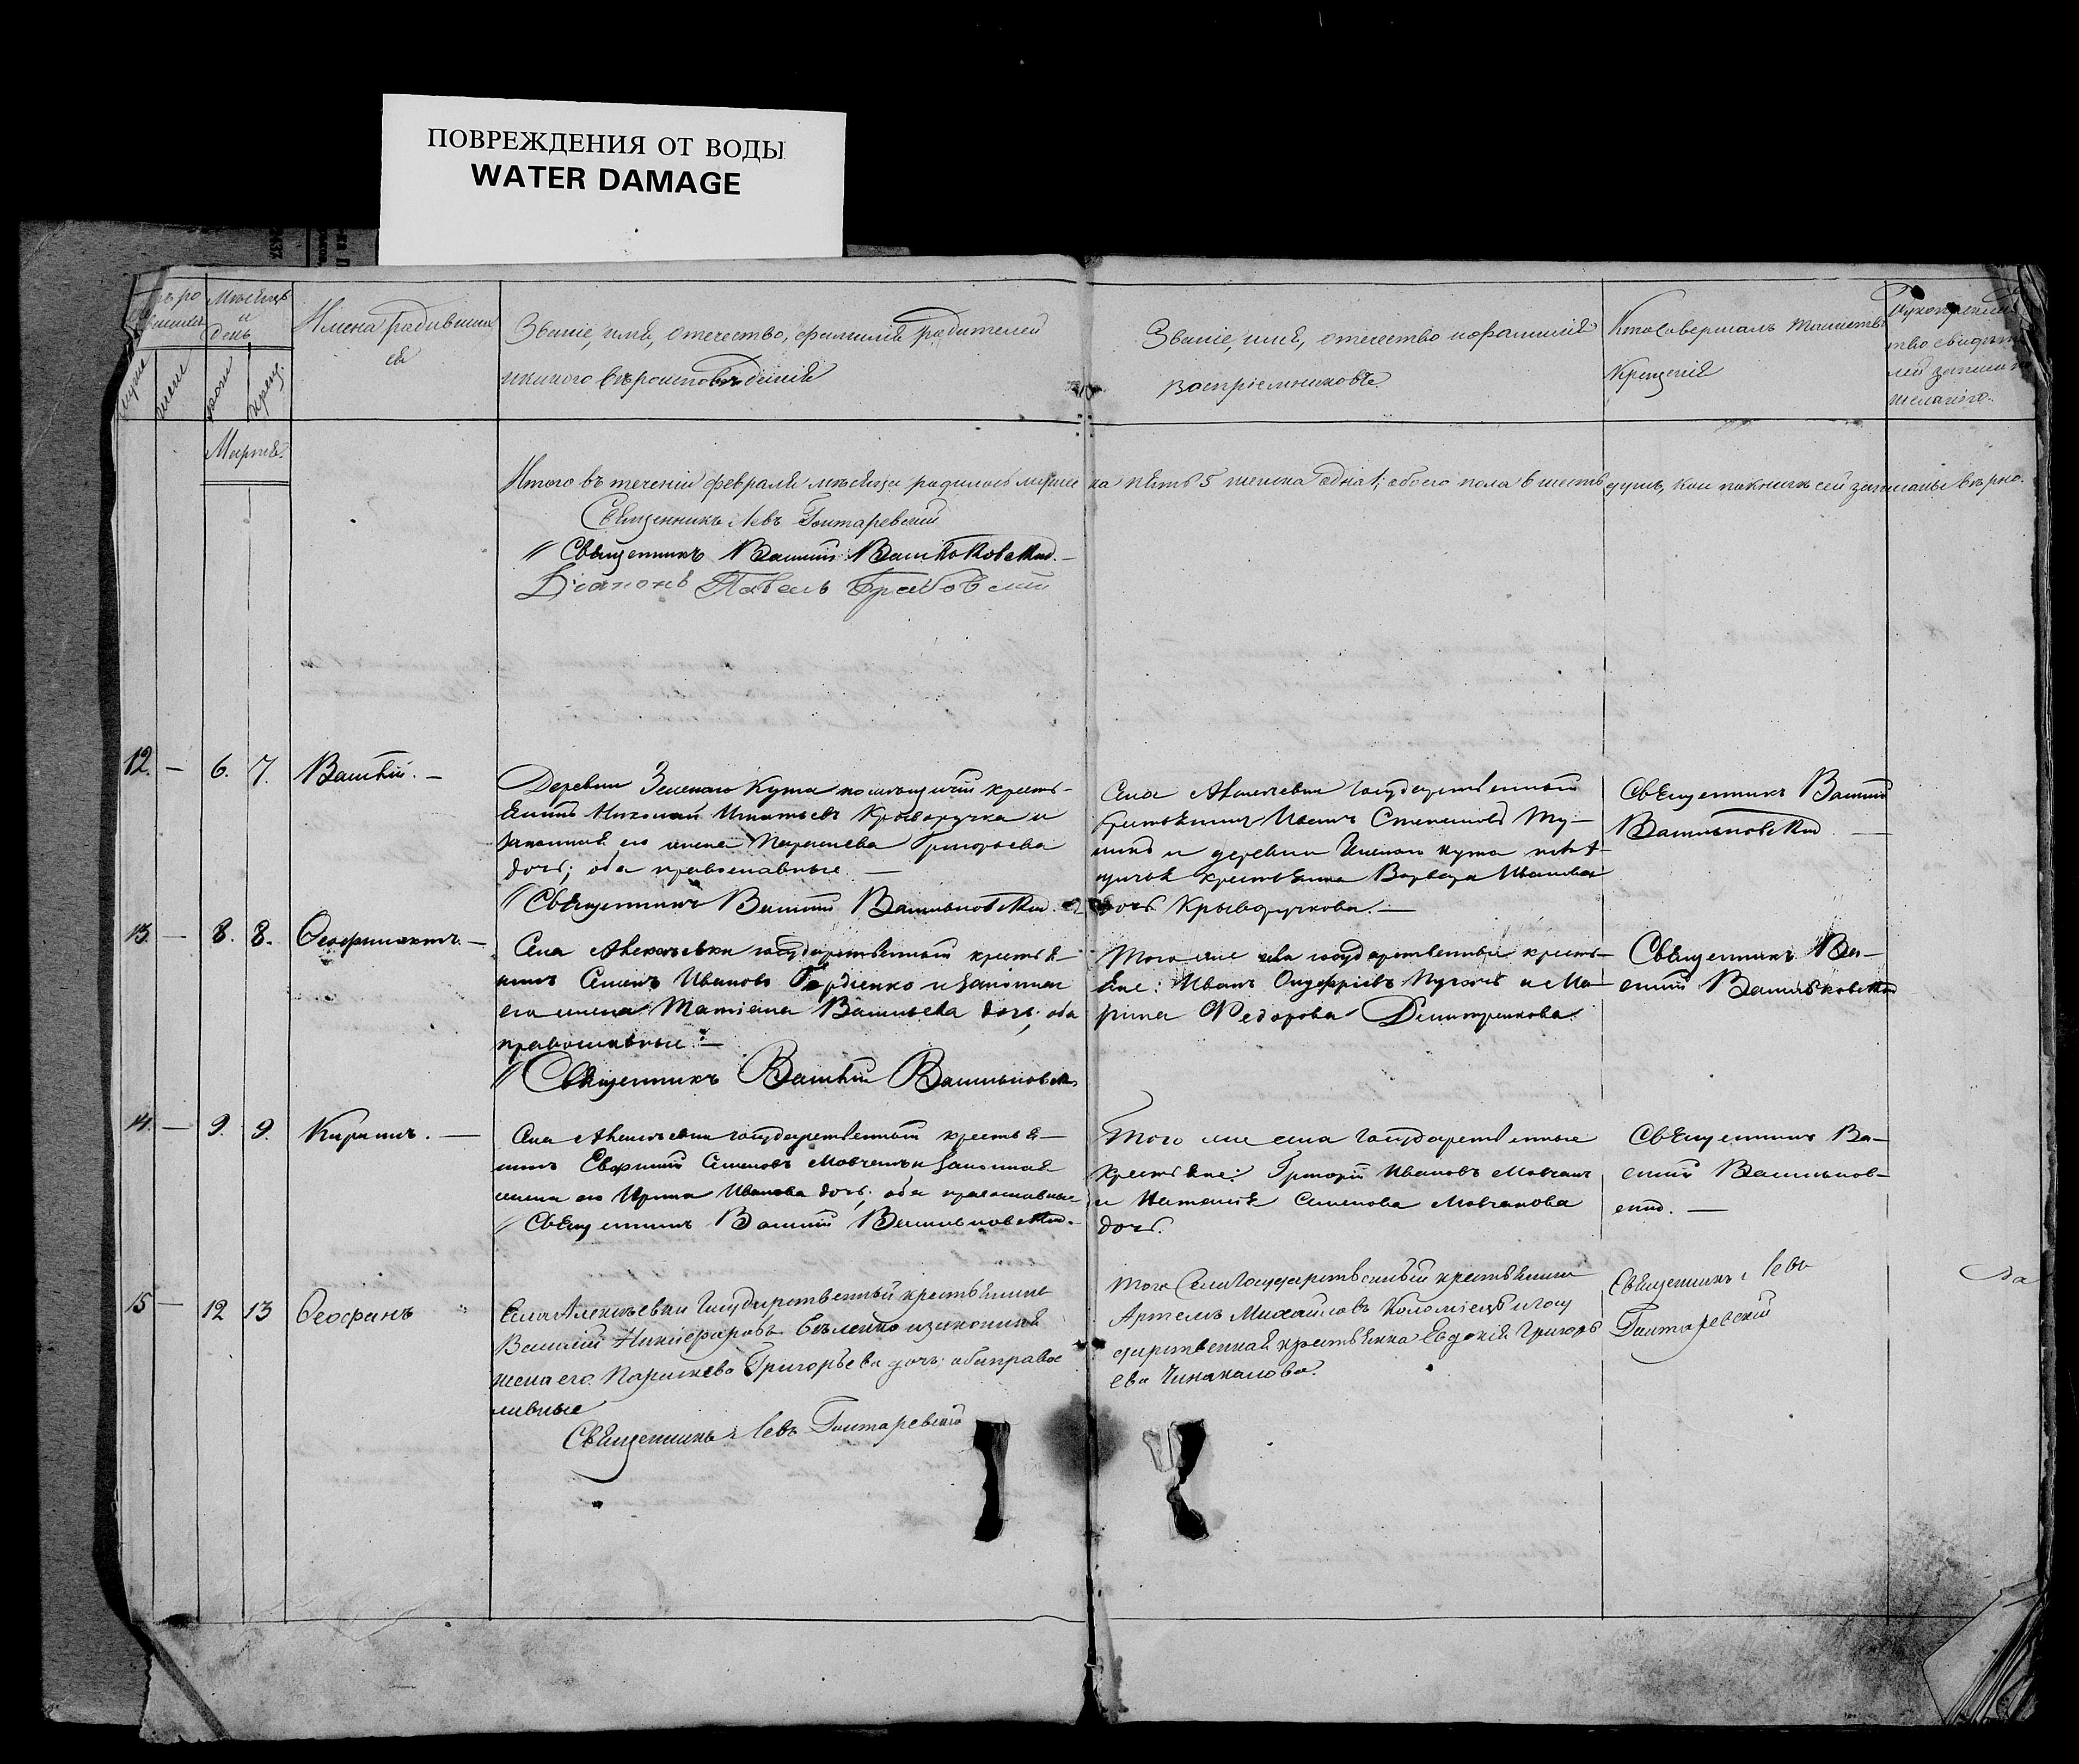 ПОВРЕЖДЕНИЯ ОТ ВОДЫ
WATER DAMAGE
Мѣсяцъ
и
день
Имена родивших
ся
Званіе, имя, отечество, фамилія родителей
и какого вѣроисповѣданія
Званіе, имя, отечество и фамилія
воспріемниковъ
Кто совершалъ таинство
крещенія
Рукоприклад
ство свидѣте
лей записи по
желанію.
муже
жен
рож
крещ.
Марта.
Итого въ теченіи февраля мѣсяца родилось мужес
ка пять 5 женска одна 1; обоего пола 6 шесть душъ, кои по книгѣ сей записаны вѣрно.
Священникъ Левъ Гонтаревскій
// Священникъ Василій Васильковскій. —
Діаконъ Павелъ Грабовскій
12. — 6. 7. Василій. —
Деревни Зеленаго Кута помѣщичій кресть-
янинъ Николай Игнатьевъ Криворучка и
законная его жена Параскева Григорьева
дочь; оба православные. —
// Священникъ Василій Васильковскій.
Села Алексѣевки государственный
крестьянинъ Иванъ Степановъ
и деревни Зеленаго Кута помѣ-
щичья крестьянка Варвара Иванова
дочь Криворучкова. —
Священникъ Василій
Васильковскій —
13. — 8. 8. Ѳеофилактъ. —
Села Алексѣевки государственный крестья-
нинъ Семенъ Ивановъ Гордіенко и законная
его жена Татіана Васильева дочь; оба
православные. —
// Священникъ Василій Васильковскій
Того же села государственные кресть-
яне: Иванъ Онуфріевъ Пугачъ и Ма-
рина Федорова Дмитренкова.
Священникъ Ва-
силій Васильковскій
14. — 9. 9. Кириллъ. —
Села Алексѣевки государственный крестья-
нинъ Евфимій Семеновъ Мовчанъ и законная
жена его Ирина Иванова дочь; оба православные
// Священникъ Василій Васильковскій.
Того же села государственные
крестьяне: Григорій Ивановъ Мовчанъ
и Наталія Семенова Мовчанова
дочь.
Священникъ Ва-
силій Васильков-
скій. —
15 — 12 13 Ѳеофанъ
Села Алексѣевки Государственный крестьянинъ
Василій Никифоровъ Бѣленко и законная
жена его Параскева Григорьева дочь; оба право
славные
Священникъ Левъ Гонтаревскій
Того Села Государственный крестьянинъ
Артемъ Михайловъ Коломіецъ и госу
дарственная крестьянка Евдокія Григорь
ева Чинакалова.
Священникъ Левъ
Гонтаревскій
За